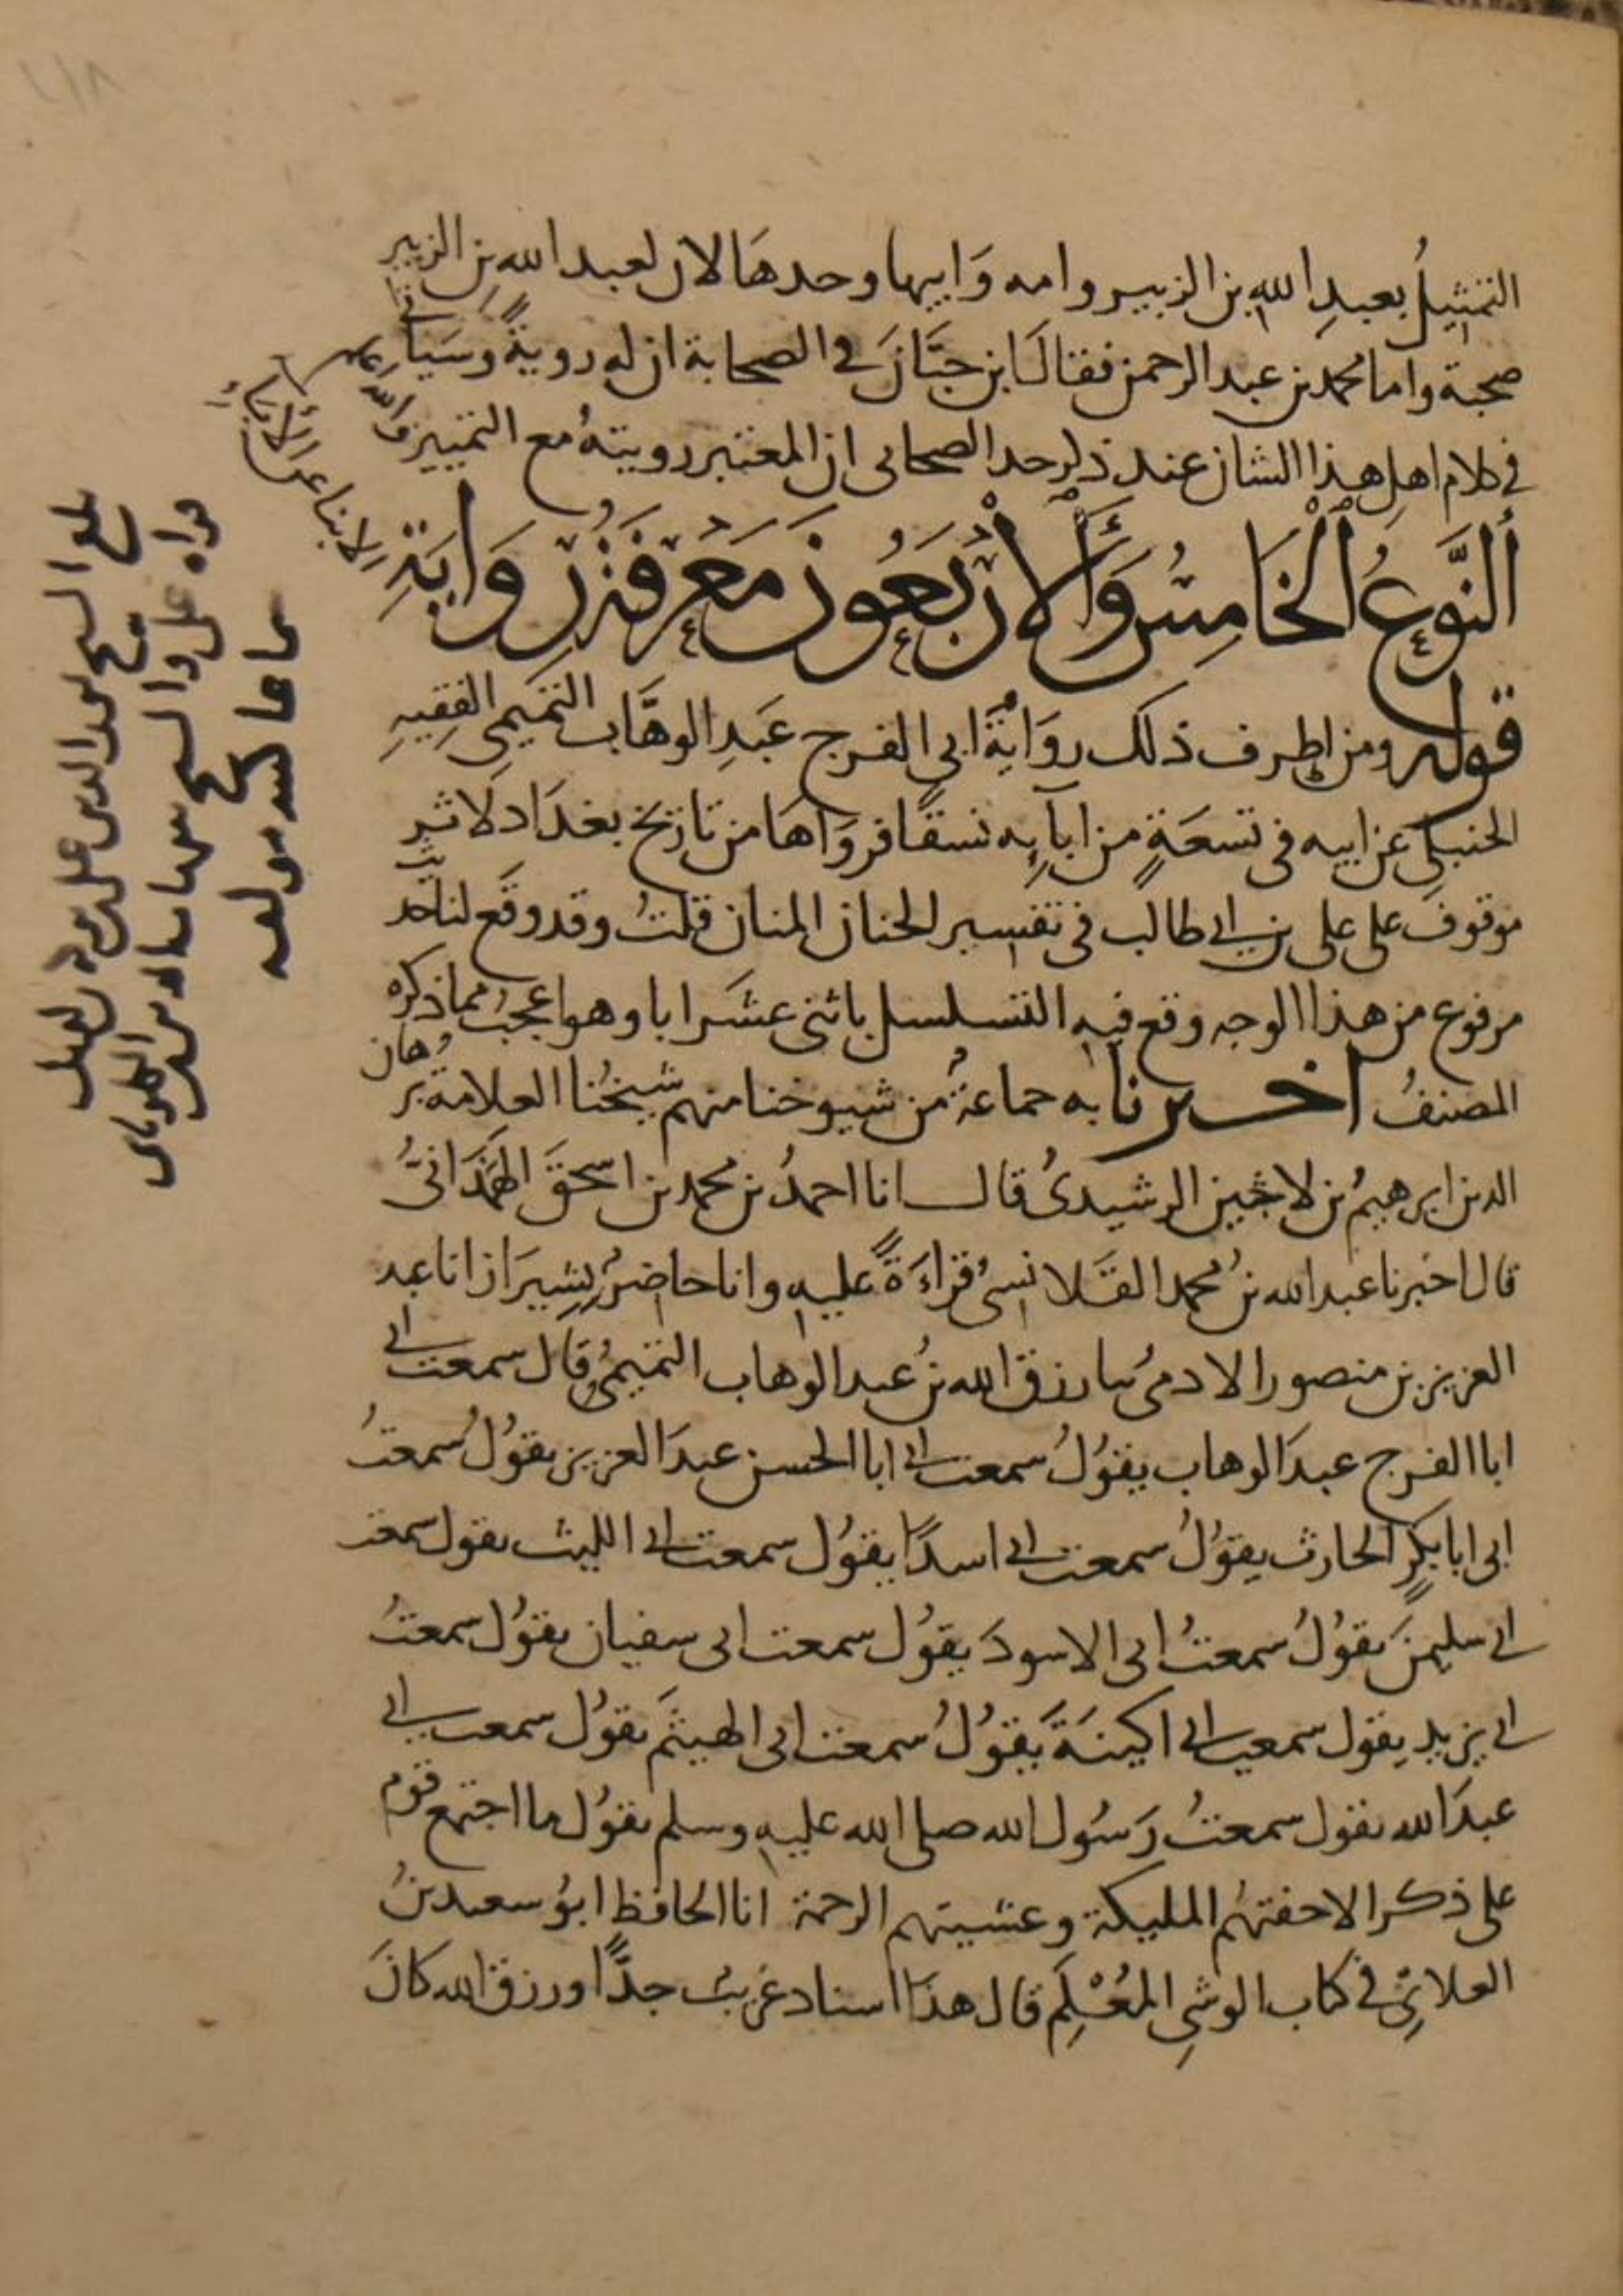 التمثيلُ بعبدِ اللهِ بن الزبير وامه وَابيها وحدهَا لان لعبد الله بن الزبير
صحبة واما محمد بن عبد الرحمن فقال ابن حبَّانَ في الصحابة ان له رويةً وسَياتي
في كلام اهل هذا الشان عند ذكر حد الصحابى ان المعتبر رويتهُ مع التمييز والله اعلم
ألنَّوعُ الْخَامِسُ وَالْأرْبَعُونَ مَعْرِفَةُ رِوَايَةِ
الابناء عن الآباء
قوله ومن اطرف ذلك روَايةُ ابي الفرج عَبدِ الوهَّاب التميمي الفقِيهِ
الحنبلي عن ابيه في تسعَةٍ من ابآيِه نسقًا فروَاهَا من تاريخ بغدَاد لاثر
موقوف على على بن ابي طالب في تفسير الحنان المنان قلتُ وقد وقَع لنا حديث
مرفوع من هذا الوجه وقع فيه التسلسل باثنى عشَر ابا وهو اعجبُ مما ذكره
المصنفُ اخبرنا به جماعةٌ من شيوخنا منهم شيخُنا العلامة برهان
الدين ابرهيمُ بن لاجين الرشيدىُ قال انا احمدُ بن محمد بن اسحقَ الهَمَذَانىُّ
قال اخبرنا عبد الله بنُ محمد القَلانسىُ قراءَةً عليه وانا حاضرٌ بشِيرَاز انا عبد
العزيز بن منصور الادمىُ نا رزق الله بنُ عبد الوهاب التميمىُ قال سمعت ابى
ابا الفرج عبدَ الوهاب يقوُلُ سمعت ابى ابا الحسن عبدَ العزيز يقوُلُ سمعتُ
ابى ابا بكرٍ الحارث يقوُلُ سمعت ابى اسدًا يقوُل سمعت ابى الليث يقول سمعت
ابى سليمنَ يقوُلُ سمعتُ ابى الاسودَ يقوُل سمعت ابى سفيان يقوُل سمعتُ
ابى يزيد يقول سمعت ابى اكينَةَ يقوُلُ سمعت ابى الهيثمَ يقوُل سمعت ابى
عبدَ الله يقول سمعتُ رَسُول الله صلى الله عليه وسلم يقوُل ما اجتمع قوم
على ذكر الا حفتهُم المليكة وغشيتهم الرحمة انا الحافظ ابوُ سعيد بنُ
العلائِىّ في كتاب الوشىِ المُعْلَمِ قال هذَا اسناد غريبٌ جدًّا ورزق الله كانَ